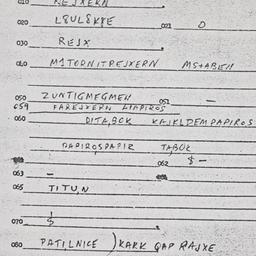 010 REJXERN
020 LSULSKPE 021 O
030 REJX
M1TORNITREJXERN MS+ABEN
050 ZUNTIGMEGMEN 051 —
059 FAREJXERN AIMPIROS
060 DITA,BOK KAJKLDEMPAPIROS
PAPIROSPAPIR TABOR
062 $ —
063 —
065 TITU,N
070 $
080 PATILNICE ) KARK QAP RAJXE